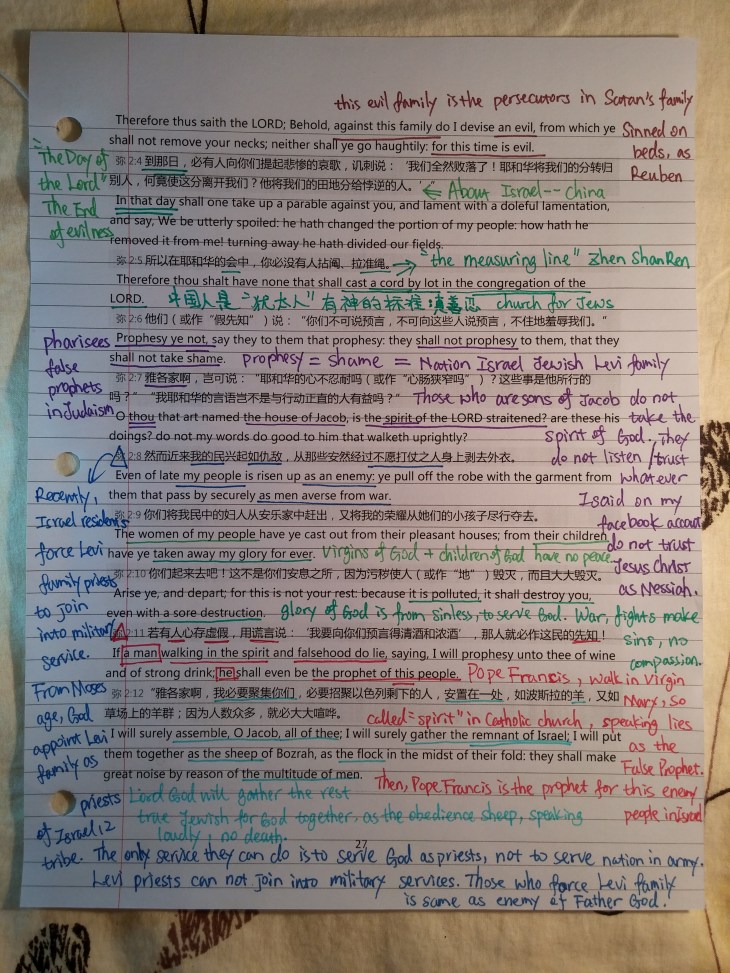 this evil family is the persecutors in Satan's family
Therefore thus saith the LORD; Behold, against this family do I devise an evil, from which ye
shall not remove your necks; neither shall ye go haughtily: for this time is evil.
Sinned on
beds, as
Reuben
"The Day of
the Lord"
The End
of evilness
弥 2:4 到那日，必有人向你们提起悲惨的哀歌，讥刺说：‘我们全然败落了！耶和华将我们的分转归
别人，何竟使这分离开我们？他将我们的田地分给悖逆的人。’
⇐ About Israel -- China
In that day shall one take up a parable against you, and lament with a doleful lamentation,
and say, We be utterly spoiled: he hath changed the portion of my people: how hath he
removed it from me! turning away he hath divided our fields.
弥 2:5 所以在耶和华的会中，你必没有人拈阄、拉准绳。
→ "the measuring line" Zhen Shan Ren
Therefore thou shalt have none that shall cast a cord by lot in the congregation of the
LORD.
中国人是“犹太人”有神的标准：真善忍 church for Jews
弥 2:6 他们（或作“假先知”）说：“你们不可说预言，不可向这些人说预言，不住地羞辱我们。”
Prophesy ye not, say they to them that prophesy: they shall not prophesy to them, that they
shall not take shame.
prophesy = shame = Nation Israel Jewish Levi family
pharisees
false
prophets
in Judaism
弥 2:7 雅各家啊，岂可说：“耶和华的心不忍耐吗（或作“心肠狭窄吗”）？这些事是他所行的
吗？” “我耶和华的言语岂不是与行动正直的人有益吗？”
Those who are sons of Jacob do not
take the
spirit of God. They
do not listen / trust
whatever
I said on my
facebook account
do not trust
Jesus Christ
as Messiah.
O thou that art named the house of Jacob, is the spirit of the LORD straitened? are these his
doings? do not my words do good to him that walketh uprightly?
弥 2:8 然而近来我的民兴起如仇敌，从那些安然经过不愿打仗之人身上剥去外衣。
Even of late my people is risen up as an enemy: ye pull off the robe with the garment from
them that pass by securely as men averse from war.
弥 2:9 你们将我民中的妇人从安乐家中赶出，又将我的荣耀从她们的小孩子尽行夺去。
The women of my people have ye cast out from their pleasant houses; from their children
have ye taken away my glory for ever.
virgins of God + children of God have no peace
弥 2:10 你们起来去吧！这不是你们安息之所，因为污秽使人（或作“地”）毁灭，而且大大毁灭。
Arise ye, and depart; for this is not your rest: because it is polluted, it shall destroy you,
even with a sore destruction.
glory of God is from sinless, to serve God. War, fights make
sins, no
compassion.
弥 2:11 若有人心存虚假，用谎言说：‘我要向你们预言得清酒和浓酒’，那人就必作这民的先知！
If a man walking in the spirit and falsehood do lie, saying, I will prophesy unto thee of wine
and of strong drink; he shall even be the prophet of this people.
Pope Francis, walk in Virgin
Mary, so
called "spirit" in Catholic church, speaking lies
as the
False Prophet.
弥 2:12 “雅各家啊，我必要聚集你们，必要招聚以色列剩下的人，安置在一处，如波斯拉的羊，又如
草场上的羊群；因为人数众多，就必大大喧哗。
I will surely assemble, O Jacob, all of thee; I will surely gather the remnant of Israel; I will put
them together as the sheep of Bozrah, as the flock in the midst of their fold: they shall make
great noise by reason of the multitude of men.
Then, Pope Francis is the prophet for this enemy
people in Israel
Lord God will gather the rest
true Jewish for God together, as the obedience sheep, speaking
loudly, no death.
27
Recently,
Israel residents
force Levi
family priests
to join
into military
service.
From Moses
age, God
appoint Levi
family as
priests
of Israel 12
tribe. The only service they can do is to serve God as priests, not to serve nation in army.
Levi priests can not join into military services. Those who force Levi family
is same as enemy of Father God.